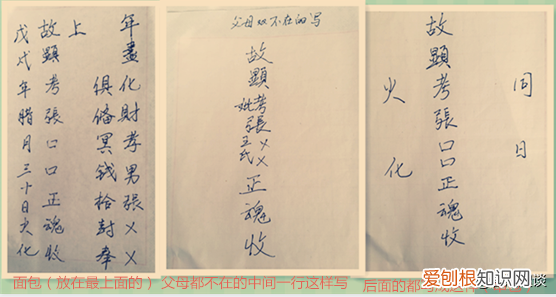 年盡化財孝男張××
俱備冥钱拾封奉
上
故顯考張口口正魂收
戊戌年腊月三十日火化
父母双不在的写
故顯
考張××
妣王氏××
正魂收
同日
故顯考張口口正魂收
火化
面包（放在最上面的）
父母都不在的中间一行这样写
后面的都
爱刨根知识网
谈